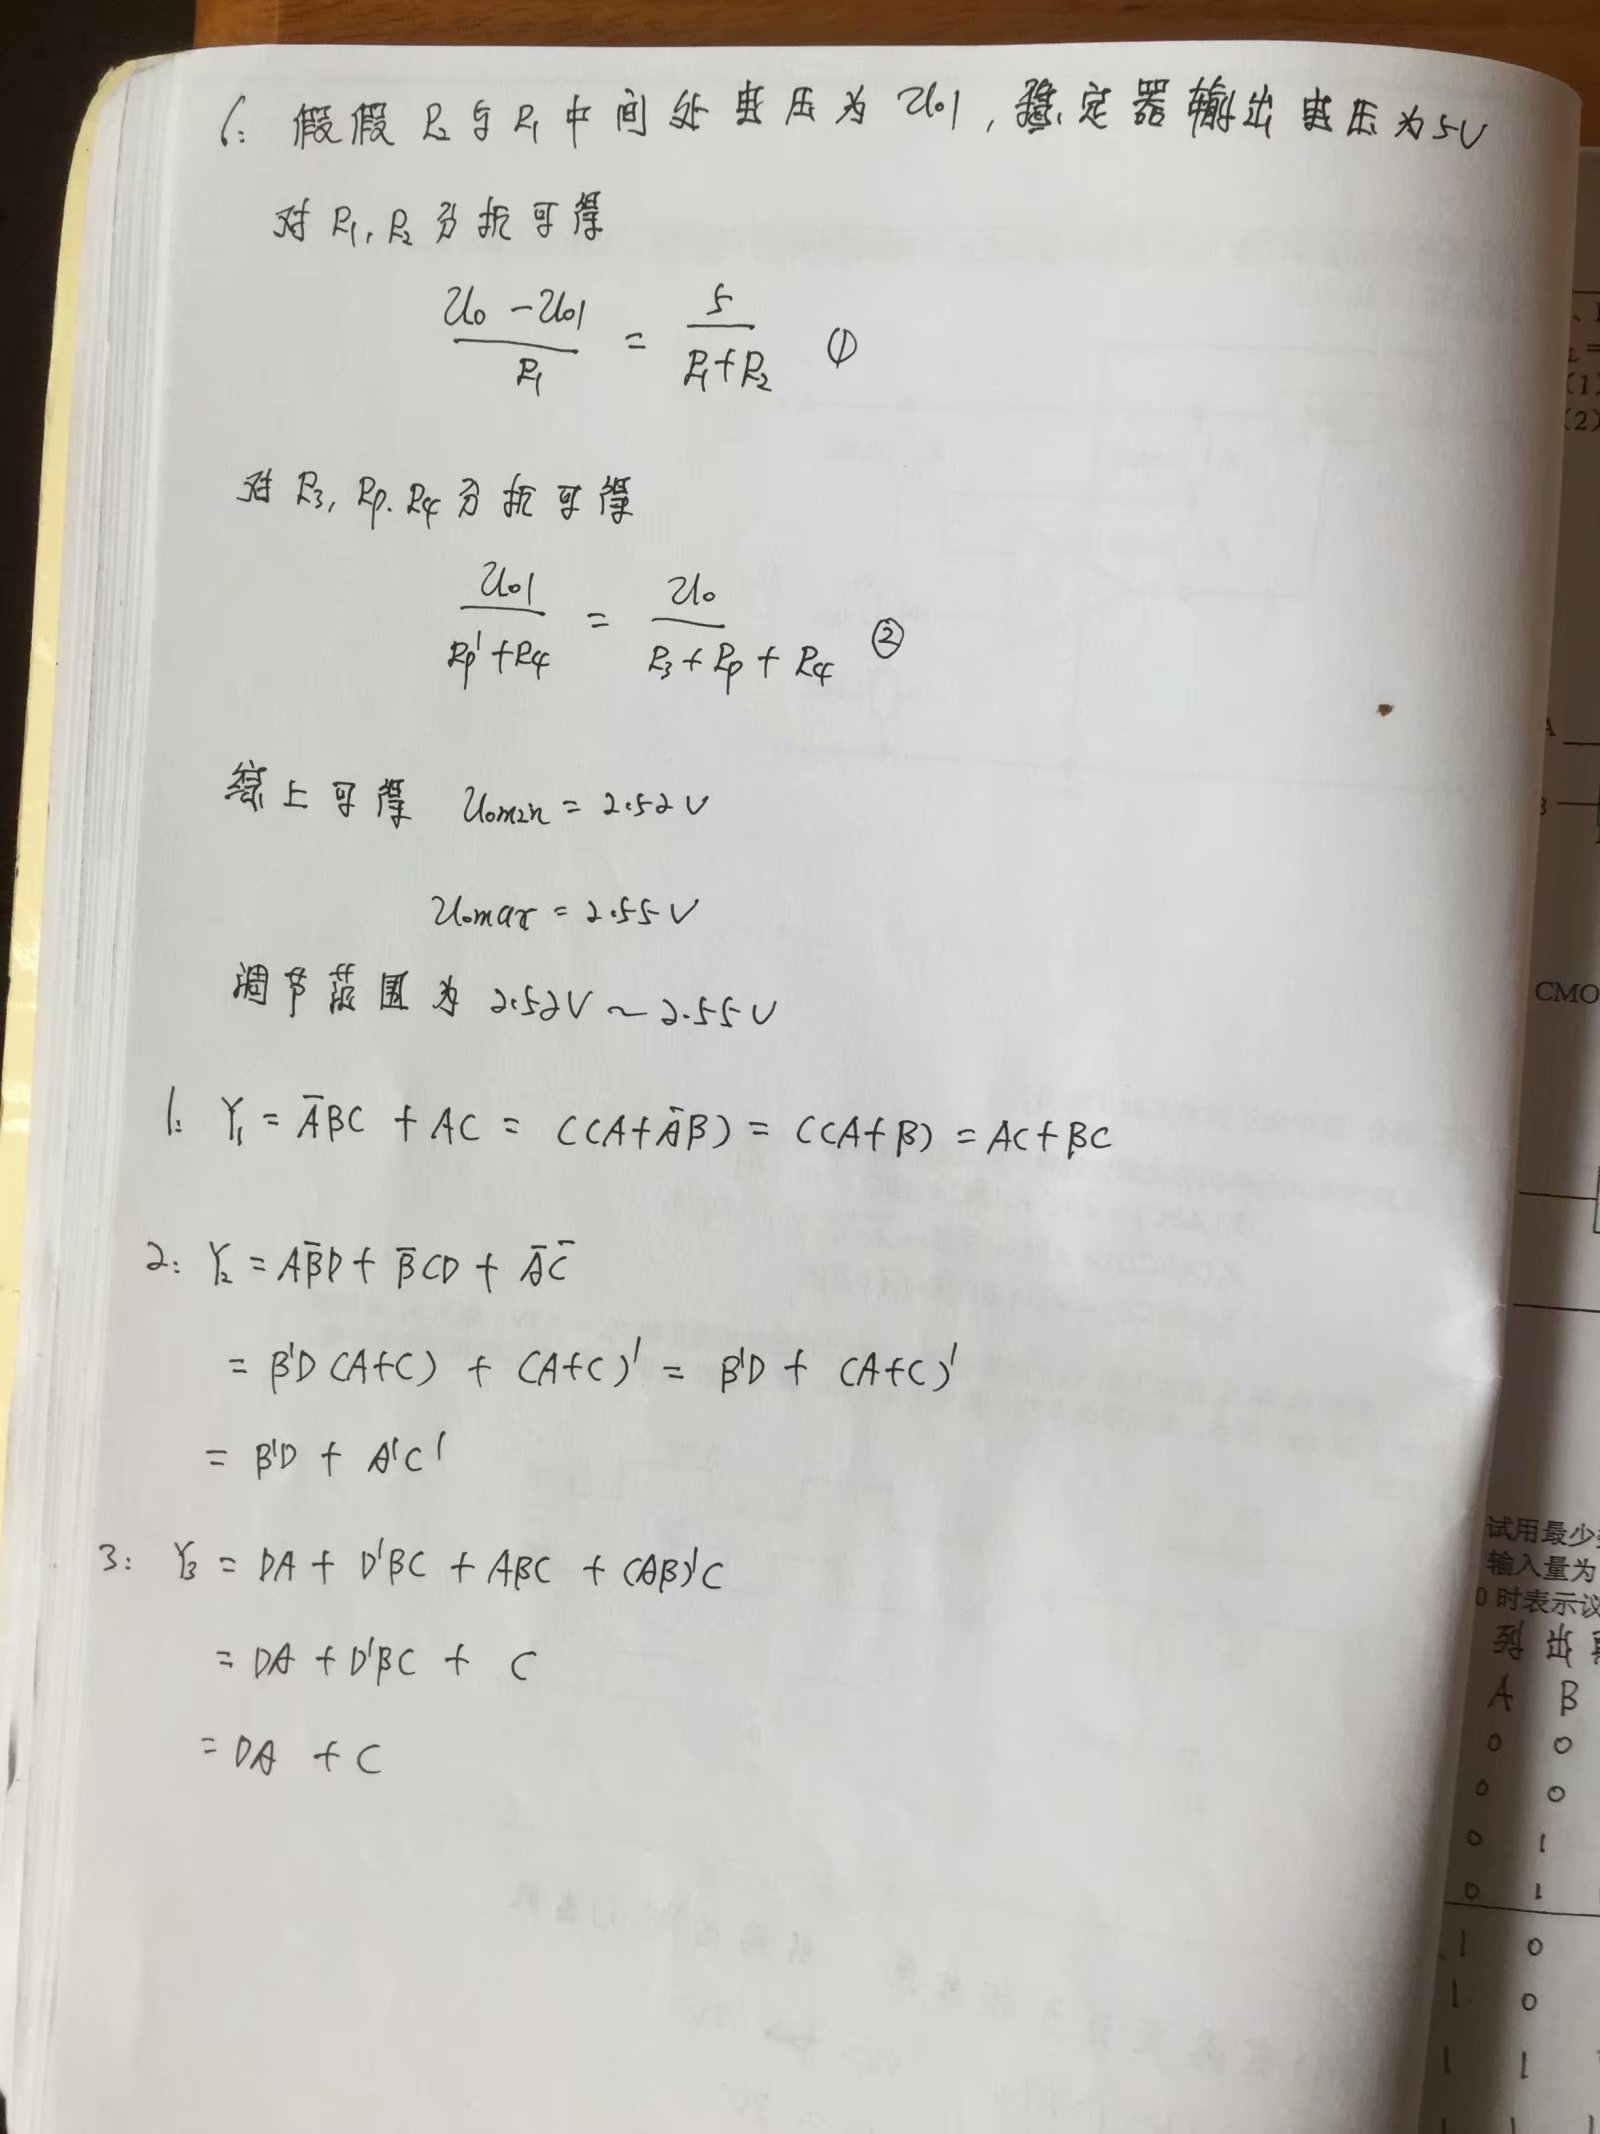 6: 假假 R₂ 与 R₁ 中间处电压为 Uo1, 稳定器输出电压为5V
对 R₁, R₂ 分析可得
(Uo - Uo1)/R₁ = 5/(R₁+R₂) ①
对 R₃, Rp. R₄ 分析可得
Uo1/(Rp'+R₄) = Uo/(R₃+Rp+R₄) ②
综上可得 Uomin = 2.52V
Uomax = 2.55V
调节范围为 2.52V ~ 2.55V
1: Y₁ = A̅BC + AC = C(A+A̅B) = C(A+B) = AC+BC
2: Y₂ = AB̅D + B̅CD + A̅C̅
= B'D(A+C) + (A+C)' = B'D + (A+C)'
= B'D + A'C'
3: Y₃ = DA + D'BC + ABC + (AB)'C
= DA + D'BC + C
= DA + C
(1)
(2)
A
B
CMO
试用最少
输入量为
0 时表示议
列出
A B
0 0
0 0
0 1
0 1
1 0
1 0
1 1
1 1